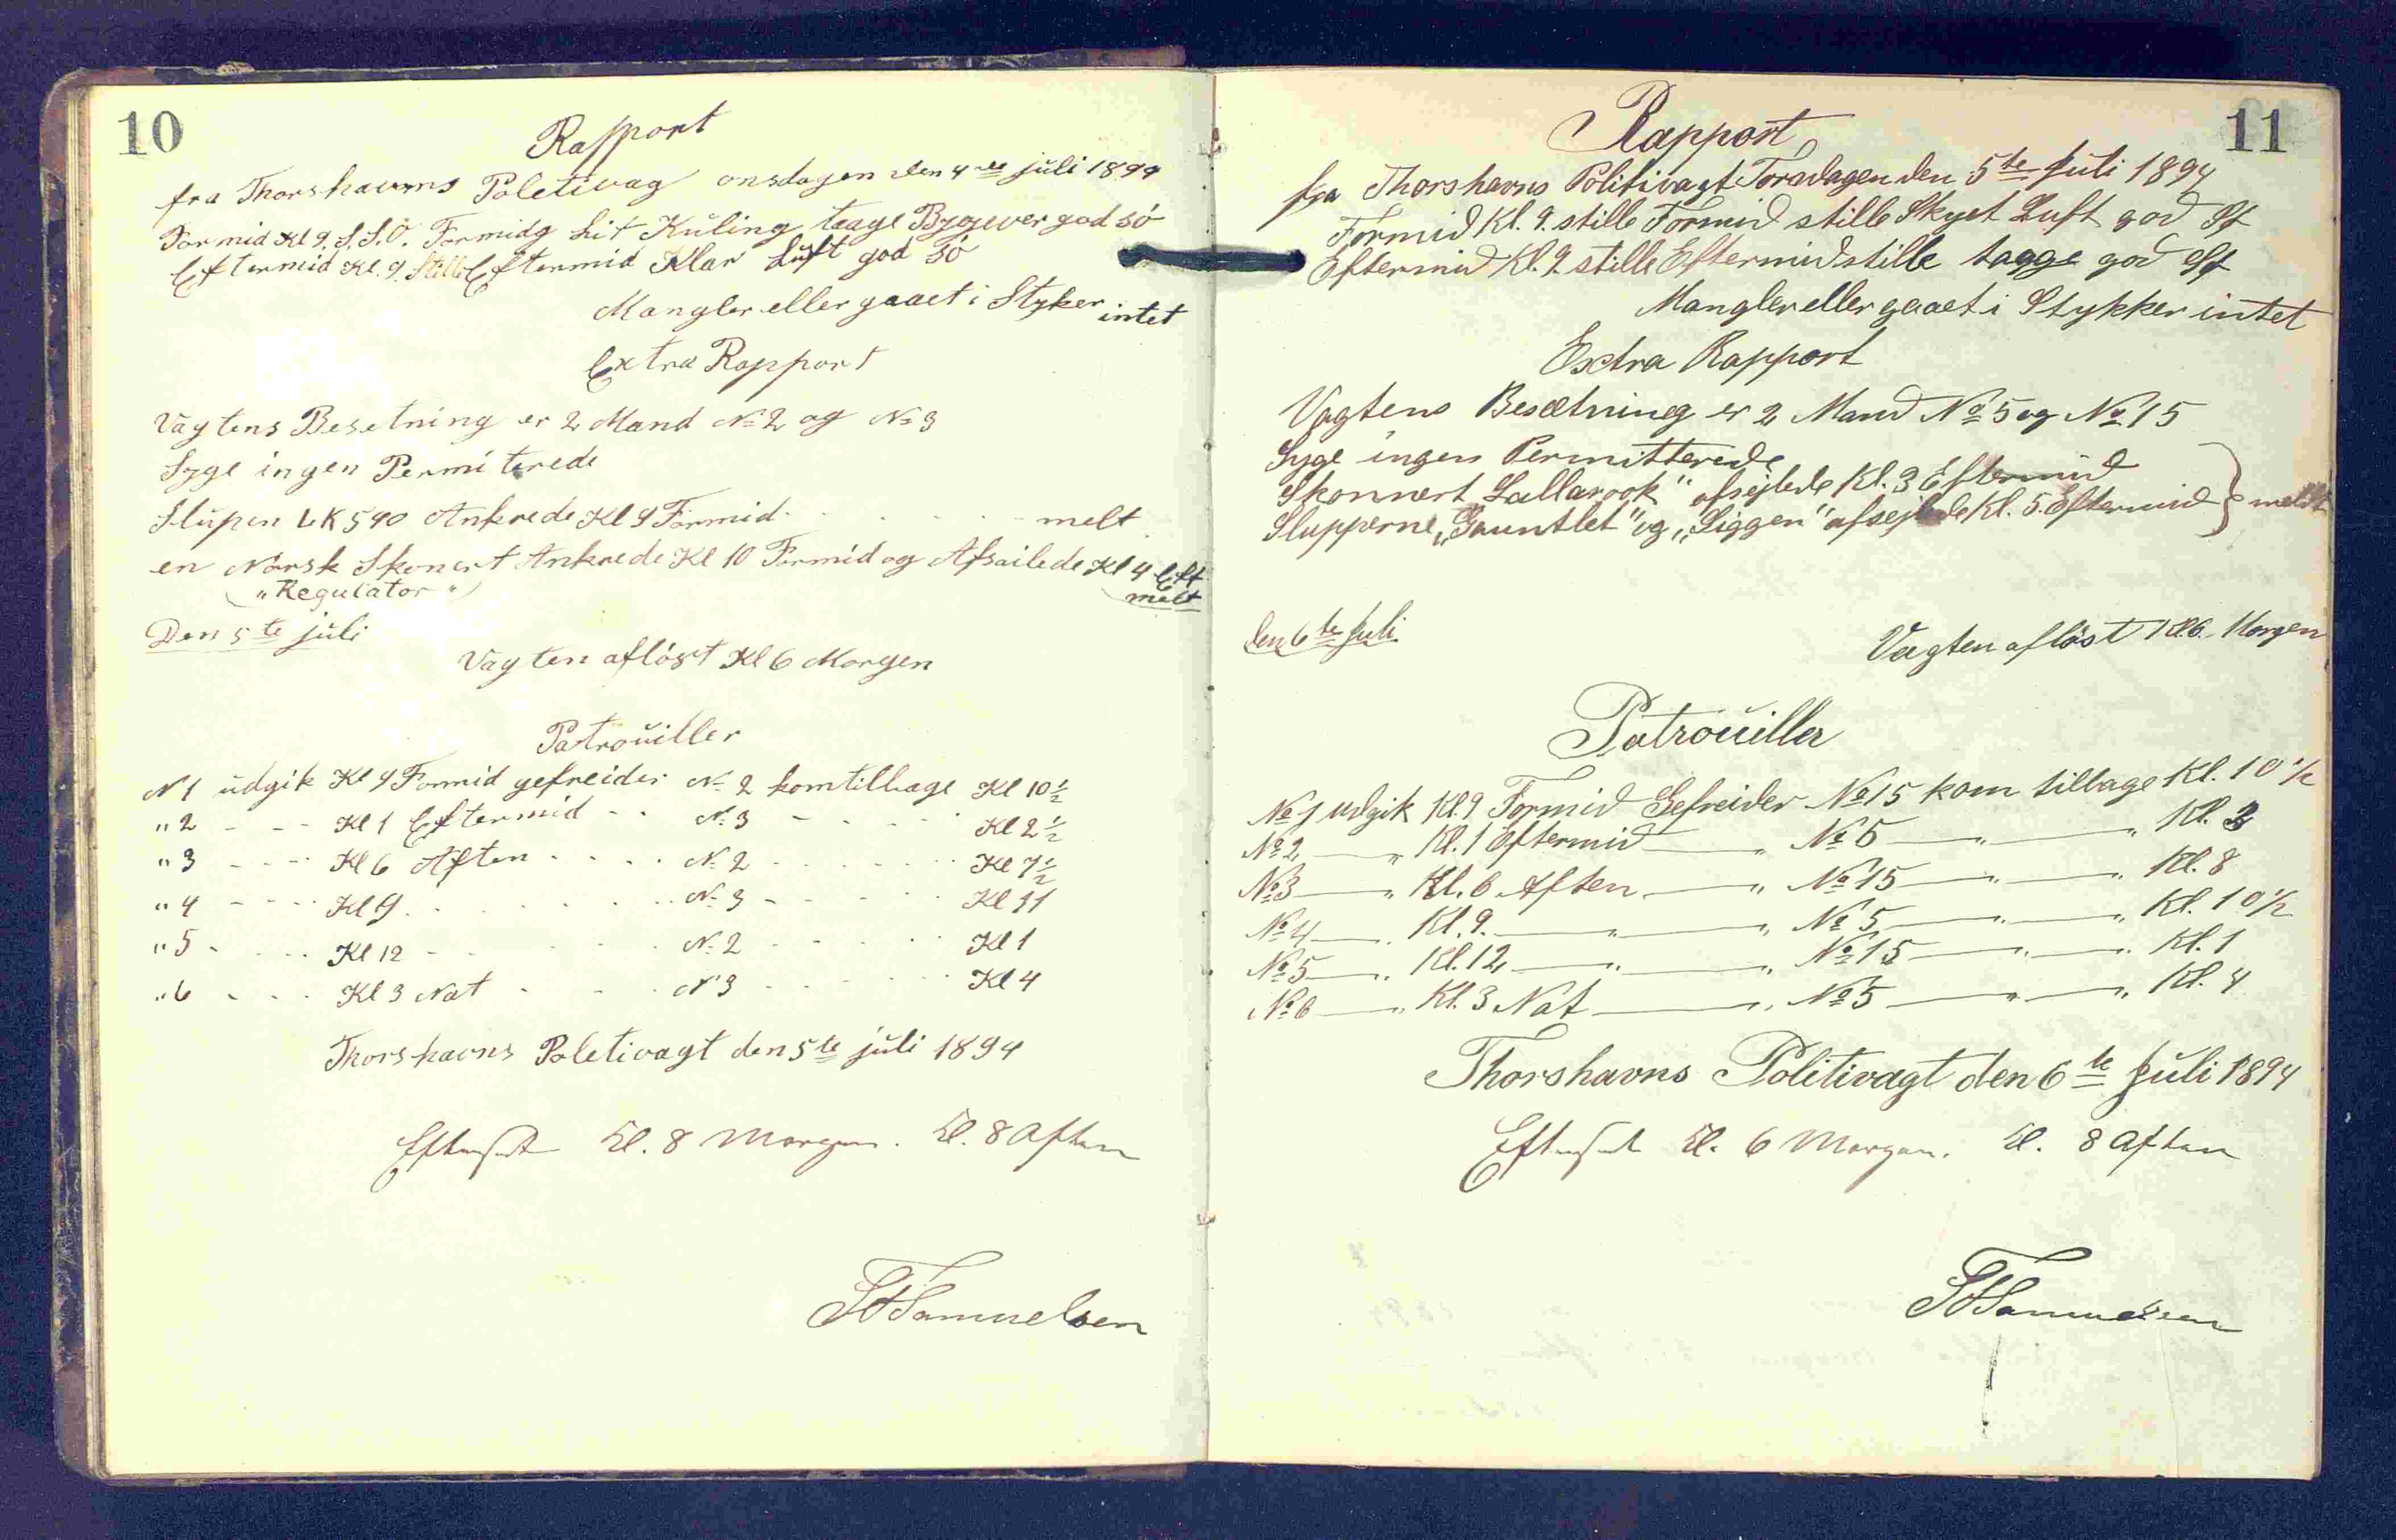 10
Rapport
fra Thorshavns Poletivag onsdagen den 4de juli 1894
Formid Kl 9. S.S.O. Formidg lit Kuling taage Byggever god Sö
Eftermid Kl. 9 Stille Eftermid Klar Luft god Sö
Mangler eller gaaet i Styker intet
Extra Rapport
Vagtens Besetning er 2 Mand No 2 og No 3
Syge ingen Permiterede
Slupen LK 590 Ankrede Kl 9 Formid - - - - melt
en Norsk Skonert Ankrede Kl 10 Formid og Afsailede Kl 4 Eft
(„Regulator") melt
Den 5te juli
Vagten aflöst Kl 6 Morgen
Patrouiller
N 1 udgik Kl 9 Formid gefreider No 2 kom tilbage Kl 10½
" 2 - - - Kl 1 Eftermid - - No 3 - - - - Kl 2½
" 3 - - - Kl 6 Aften - - - - No 2 - - - - Kl 7½
" 4 - - - Kl 9 - - - - No 3 - - - - Kl 11
" 5 - - - Kl 12 - - - - No 2 - - - - Kl 1
" 6 - - - Kl 3 Nat - - - No 3 - - - - Kl 4
Thorshavns Poletivagt den 5te juli 1894
Efterset Kl. 8 Morgen. Kl. 8 Aften
Samuelsen
11
Rapport
fra Thorshavns Politivagt Torsdagen den 5te Juli 1894
Formid Kl. 9. stille Formid stille Skyet Luft god Sö
Eftermid Kl. 9 stille Eftermid stille taage god Sö
Mangler eller gaaet i Stykker intet
Extra Rapport
Vagtens Besætning er 2 Mand No 5 og No 15
Syge ingen Permitterede
Skonnert „Lallarook" afsejlede Kl. 3 Eftermid
Slupperne „Gauntlet" og „Siggen" afsejlede Kl. 5. Eftermid } meldt
den 6te Juli
Vagten aflöst Kl 6. Morgen
Patrouiller
No 1 udgik Kl. 9 Formid Gefreider No 15 kom tilbage Kl. 10½
No 2 — " Kl. 1 Eftermid — " No 5 — " — " Kl. 3
No 3 — " Kl. 6 Aften — " No 15 — " — " Kl. 8
No 4 — " Kl. 9. — " — " No 5 — " — " Kl. 10½
No 5 — " Kl. 12 — " — " No 15 — " — " Kl. 1
No 6 — " Kl. 3 Nat — " No 5 — " — " Kl. 4
Thorshavns Politivagt den 6te Juli 1894
Efterset Kl. 6 Morgen. Kl. 8 Aften
Samuelsen